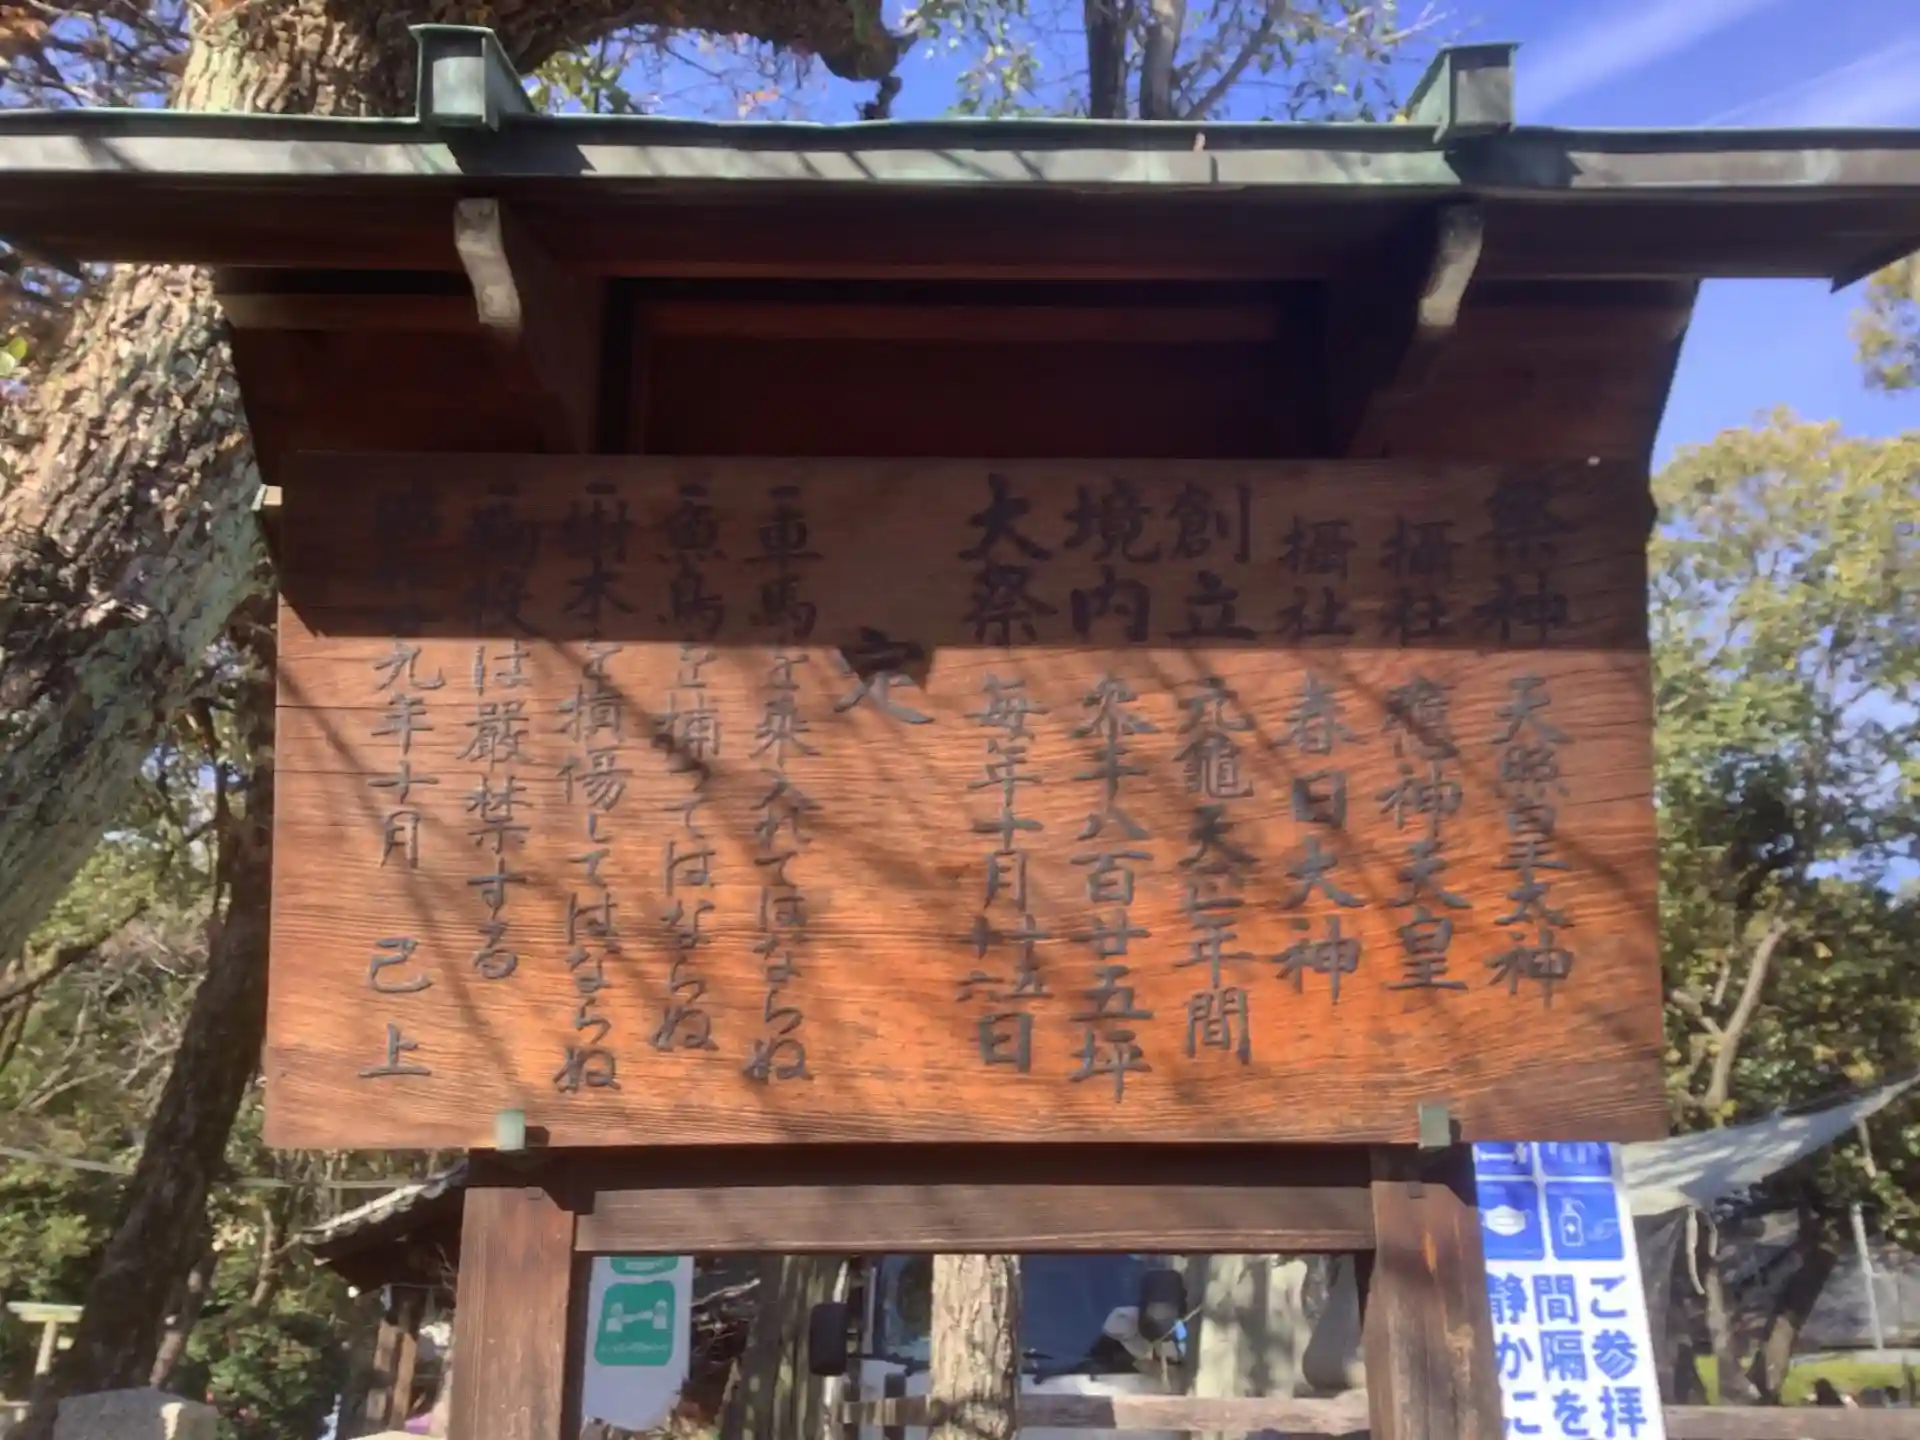 祭神 天照皇大神
攝社 應神天皇
攝社 春日大神
創立 元龜天正年間
境内 参千八百廿五坪
大祭 毎年十月十五十六日
定
一車馬を乗入れてはならぬ
一魚鳥を捕つてはならぬ
一樹木を損傷してはならぬ
一 は嚴禁する
九年十月 已上
ご参拝
間隔を
静かに